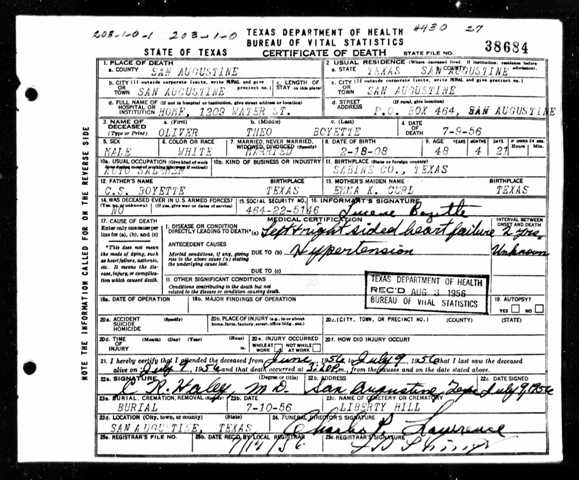 203-1-0-1 203-1-0 TEXAS DEPARTMENT OF HEALTH 4430 27
BUREAU OF VITAL STATISTICS
STATE OF TEXAS CERTIFICATE OF DEATH STATE FILE NO. 38684
1. PLACE OF DEATH 2. USUAL RESIDENCE (Where deceased lived. If institution: residence before admission)
a. COUNTY SAN AUGUSTINE a. STATE TEXAS b. COUNTY SAN AUGUSTINE
b. CITY (If outside corporate limits, write RURAL and give precinct no.) c. LENGTH OF STAY c. CITY (If outside corporate limits, write RURAL and give precinct no.)
OR TOWN SAN AUGUSTINE OR TOWN SAN AUGUSTINE
d. FULL NAME OF HOSPITAL OR INSTITUTION (If not in hospital or institution, give street address or location) d. STREET ADDRESS (If rural, give location)
HOME, 1309 WATER ST. P.O. BOX 464, SAN AUGUSTINE
3. NAME OF DECEASED (Type or Print) a. (First) b. (Middle) c. (Last) 4. DATE OF DEATH
OLIVER THEO BOYETTE 7-9-56
5. SEX 6. COLOR OR RACE 7. MARRIED, NEVER MARRIED, WIDOWED, DIVORCED (Specify) 8. DATE OF BIRTH 9. AGE YEARS MONTHS DAYS
MALE WHITE MARRIED 2-18-08 48 4 21
10a. USUAL OCCUPATION 10b. KIND OF BUSINESS OR INDUSTRY 11. BIRTHPLACE (State or foreign country)
AUTO SABINE CO., TEXAS
12. FATHER'S NAME BIRTHPLACE 13. MOTHER'S MAIDEN NAME BIRTHPLACE
C.S. BOYETTE TEXAS EMMA K. CURL TEXAS
14. WAS DECEASED EVER IN U.S. ARMED FORCES? 15. SOCIAL SECURITY NO. 16. INFORMANT'S SIGNATURE
NO 464-22-5146 Boyette
17. CAUSE OF DEATH MEDICAL CERTIFICATION INTERVAL BETWEEN ONSET AND DEATH
Enter only one cause per line for (a), (b), and (c)
I. DISEASE OR CONDITION DIRECTLY LEADING TO DEATH* (a) Left & right sided heart failure 2 yrs.
*This does not mean the mode of dying, such as heart failure, asthenia, etc. It means the disease, injury, or complication which caused death.
ANTECEDENT CAUSES DUE TO (b) Hypertension Unknown
Morbid conditions, if any, giving rise to the above cause (a) stating the underlying cause last.
DUE TO (c)
II. OTHER SIGNIFICANT CONDITIONS
Conditions contributing to the death but not related to the disease or condition causing death.
TEXAS DEPARTMENT OF HEALTH
REC'D AUG 3 1956
BUREAU OF VITAL STATISTICS
18a. DATE OF OPERATION 18b. MAJOR FINDINGS OF OPERATION 19. AUTOPSY? YES NO
20a. ACCIDENT SUICIDE HOMICIDE (Specify) 20b. PLACE OF INJURY 20c. (CITY, TOWN, OR PRECINCT NO.) (COUNTY) (STATE)
20d. TIME OF INJURY (Month) (Day) (Year) (Hour) 20e. INJURY OCCURRED WHILE AT WORK NOT WHILE AT WORK 20f. HOW DID INJURY OCCUR?
21. I hereby certify that I attended the deceased from June, 1956, to July 9, 1956, that I last saw the deceased
alive on July 9, 1956, and that death occurred at 3:20P m., from the causes and on the date stated above.
22a. SIGNATURE (Degree or title) 22b. ADDRESS 22c. DATE SIGNED
C. R. Haley M.D. San Augustine, Texas July 9, 1956
23a. BURIAL, CREMATION, REMOVAL (Specify) 23b. DATE 23c. NAME OF CEMETERY OR CREMATORY
BURIAL 7-10-56 LIBERTY HILL
23d. LOCATION (City, town, or county) (State) 24. FUNERAL DIRECTOR'S SIGNATURE
SAN AUGUSTINE, TEXAS Charles Lawrence
25a. REGISTRAR'S FILE NO. 25b. DATE REC'D BY LOCAL REGISTRAR 25c. REGISTRAR'S SIGNATURE
THE INFORMATION CALLED FOR ON THE REVERSE SIDE